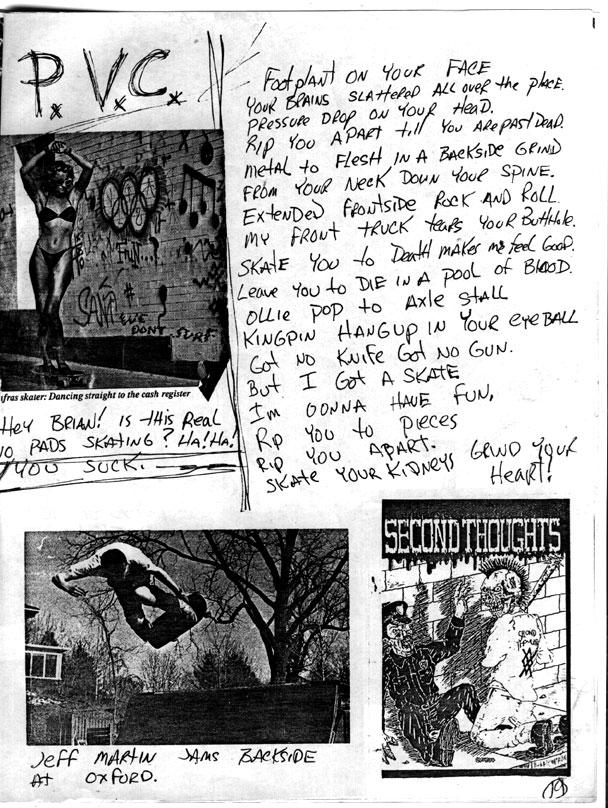 P.V.C.
FUN...?
SAVA
WE
DONT SURF
fras skater: Dancing straight to the cash register
HEY BRIAN! IS THIS REAL
NO PADS SKATING? HA! HA!
YOU SUCK.
FOOTPLANT ON YOUR FACE
YOUR BRAINS SLATTERED ALL OVER the PLACE.
PRESSURE DROP ON YOUR HEAD.
RIP YOU APART till YOU ARE PAST DEAD.
METAL to FLESH IN A BACKSIDE GRIND
FROM YOUR NECK DOWN YOUR SPINE.
EXTENDED FRONTSIDE ROCK AND ROLL
MY FRONT TRUCK tears YOUR Butthole.
SKATE YOU to Death makes me feel Good.
Leave YOU to DIE IN A POOL of BLOOD.
OLLIE POP to AXLE STALL
KINGPIN HANGUP IN YOUR EYEBALL
GOT NO KNIFE GOT NO GUN.
BUT I GOT A SKATE
Im GONNA HAVE FUN,
RIP YOU to PIECES
RIP YOU APART.
SKATE YOUR KIDNEYS GRIND YOUR
HEART!
SECOND THOUGHTS
Jeff MARTIN JAMS BACKSIDE
At OXFORD.
19